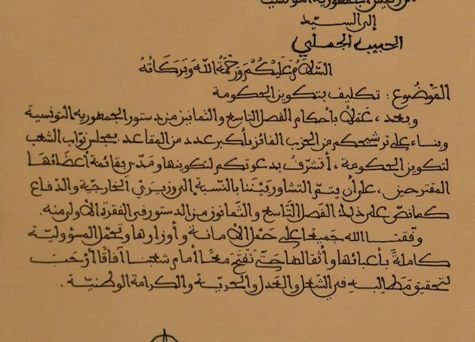 من رئيس الجمهورية التونسية
إلى السيّد
الحبيب الجملي
السّلام عليكم ورحمة الله وبركاته
الموضوع: تكليف بتكوين الحكومة
وبعد، عملا بأحكام الفصل التاسع والثمانين من دستور الجمهورية التونسية
وبناء على ترشيحكم من الحزب الفائز بأكبر عدد من المقاعد بمجلس نواب الشعب
لتكوين الحكومة، أتشرّف بدعوتكم لتكوينها ومدّي بقائمة أعضائها
المقترحين، على أن يتمّ التشاور بيننا بالنسبة إلى وزيري الخارجيّة والدّفاع
كما نصّ على ذلك الفصل التّاسع والثّمانون من الدستور في الفقرة الأولى منه.
وفّقنا الله جميعا على حمل الأمانة وأوزارها وتحمّل المسؤوليّة
كاملة بأعبائها وأثقالها حتّى نفتح معًا أمام شعبنا آفاقًا أرحب
لتحقيق مطالبه في الشّغل والعدل والحريّة والكرامة الوطنيّة.